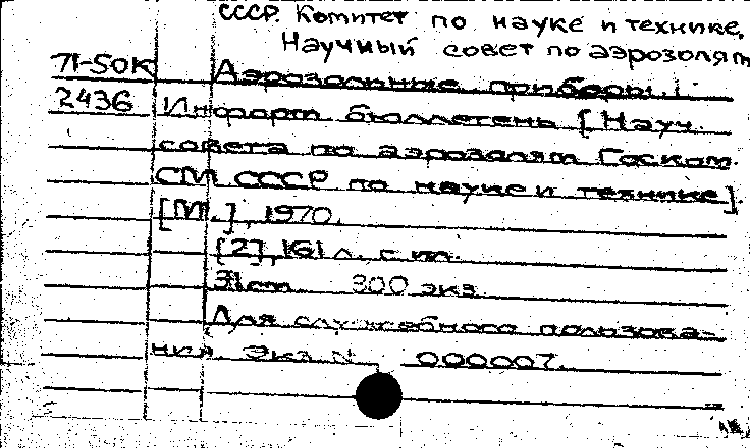 СССР. Комитет по науке и технике.
Научный совет по аэрозолям
71-50К Аэрозольные приборы.
2436 Информ бюллетень [Науч.
совета по аэрозолям Госком.
СМ СССР по науке и технике].
[М.], 1970.
[2], 161 л. с ил.
31см 300 экз.
Для служебного пользова-
ния Экз № 000007.